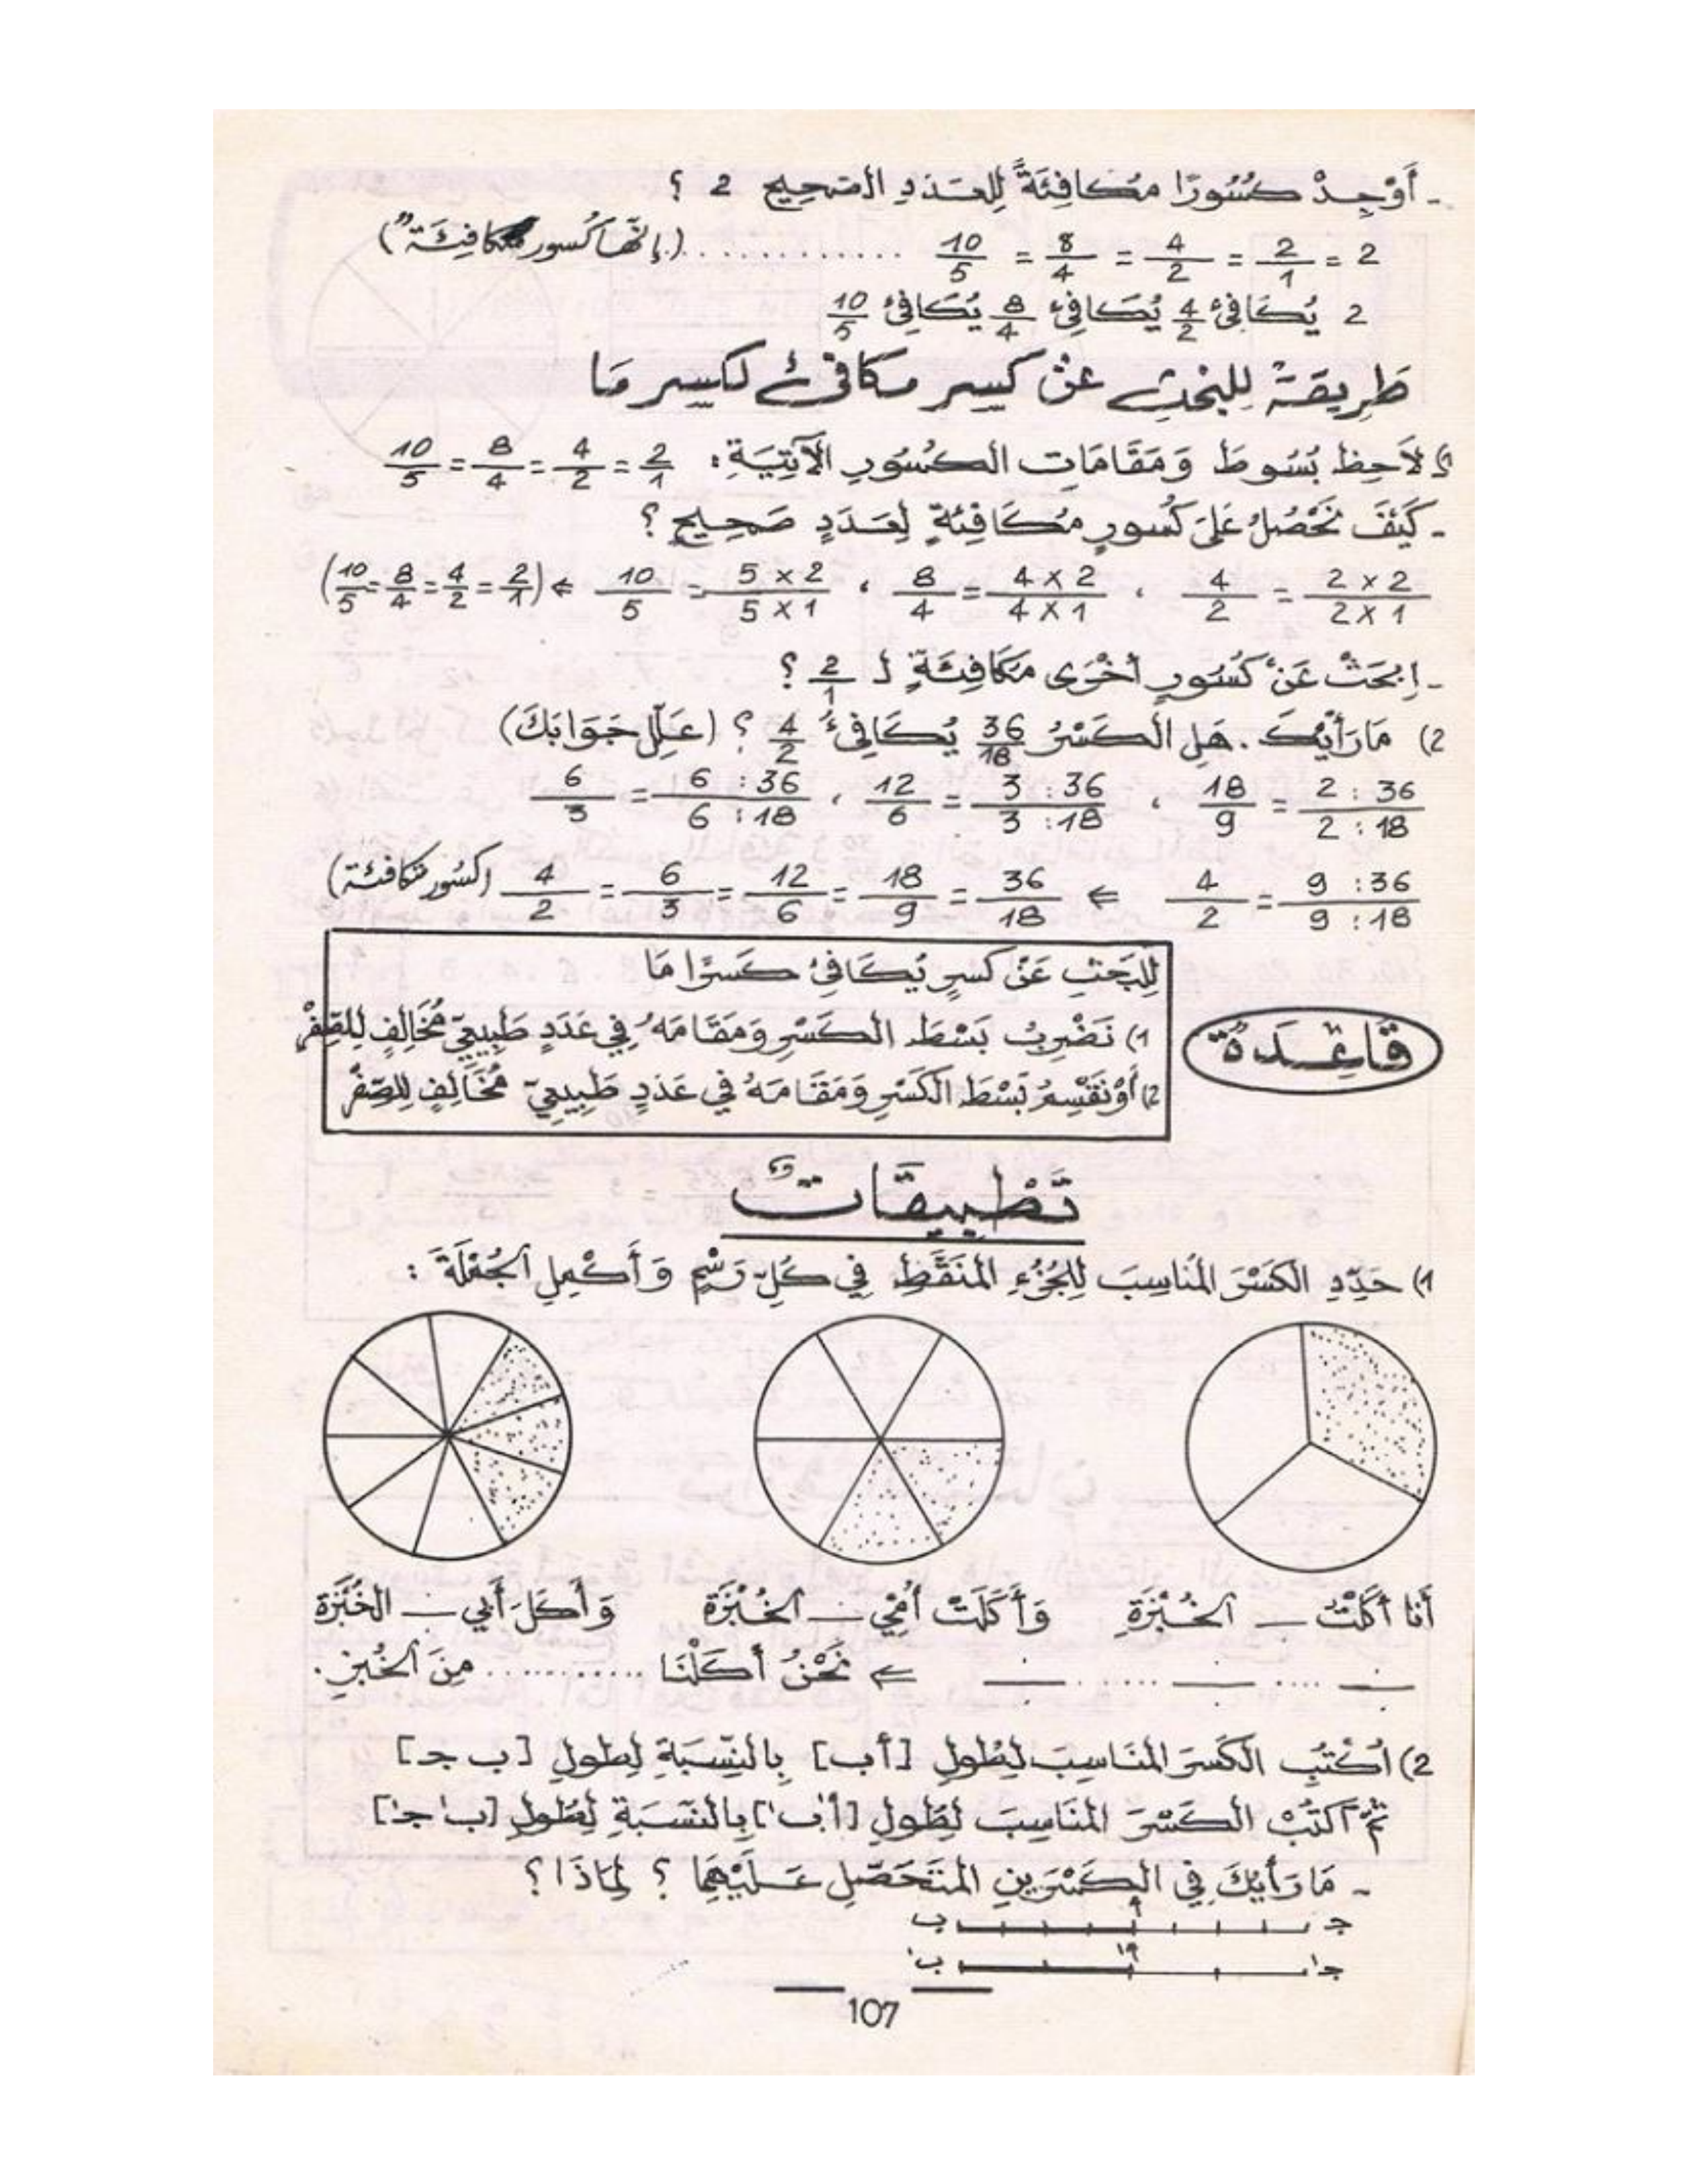 - أَوْجِدْ كُسُورًا مُكَافِئَةً لِلعَدَدِ الصَحِيحِ 2 ؟
2 = 2/1 = 4/2 = 8/4 = 10/5 ............ (إنَّهَا كُسور متكافِئَة")
2 يُكَافِئ 4/2 يُكَافِئ 8/4 يُكَافِئ 10/5
طَرِيقَةٌ لِلبَحْثِ عَنْ كَسِر مكَافئ لكسر مَا
1) لاَحِظ بُسُوطَ وَمَقَامَاتِ الكُسُورِ الآتِيَةِ: 2/1 = 4/2 = 8/4 = 10/5
- كَيْفَ نَحْصُلُ عَلَى كُسورٍ مُكَافِئَةٍ لِعَدَدٍ صَحِيحٍ ؟
2 x 2 / 2 x 1 = 4/2 ، 4 x 2 / 4 x 1 = 8/4 ، 5 x 2 / 5 x 1 = 10/5 ⇐ (2/1 = 4/2 = 8/4 = 10/5)
- اِبْحَثْ عَنْ كُسُورٍ أخْرَى مُكَافِئَةٍ لـ 2/1 ؟
2) مَا رَأْيُكَ . هَلِ الكَسْرُ 36/18 يُكَافِئُ 4/2 ؟ (عَلِّل جَوَابَكَ)
2 : 36 / 2 : 18 = 18/9 ، 3 : 36 / 3 : 18 = 12/6 ، 6 : 36 / 6 : 18 = 6/3
9 : 36 / 9 : 18 = 4/2 ⇐ 36/18 = 18/9 = 12/6 = 6/3 = 4/2 (كسُور متكافئة)
لِلبَحَثِ عَنْ كسرٍ يُكَافِئ كَسْرًا مَا
قَاعِدَةٌ
1) نَضْرِبُ بَسْطَ الكَسْرِ وَمَقَامَهُ فِي عَدَدٍ طَبِيعِيّ مُخَالِفٍ لِلصِفْرْ
2) أَوْ نَقْسِمُ بَسْطَ الكَسْرِ وَمَقَامَهُ فِي عَدَدٍ طَبِيعِيّ مُخَالِفٍ لِلصِّفْرْ
تَطْبِيقَاتٌ
1) حَدِّدِ الكَسْرَ المُنَاسِبَ لِلجُزْءِ المُنَقَّطِ فِي كُلِّ رَسْمٍ وَأَكْمِلِ الجُمْلَةَ :
أنا أَكَلْتُ — الخُبْزَةِ وَأَكَلَتْ أُمِّي — الخُبْزَةِ وَأَكَلَ أَبِي — الخُبْزَةِ
— ..... — ..... — ⇐ نَحْنُ أكَلْنَا ............ مِنَ الخُبزِ.
2) اُكْتُبِ الكَسْرَ المُنَاسِبَ لِطُولِ [أ ب] بِالنِّسْبَةِ لِطولِ [ب جـ]
ثُمَّ اكتُبْ الكَسْرَ المُنَاسِبَ لِطُولِ [أ' ب'] بِالنِّسْبَةِ لِطُولِ [ب' جـ']
- مَا رَأيُكَ فِي الكَسْرَينِ المُتَحَصَّلِ عَلَيْهِمَا ؟ لِمَاذَا ؟
جـ أ ب
جـ' أ' ب'
107